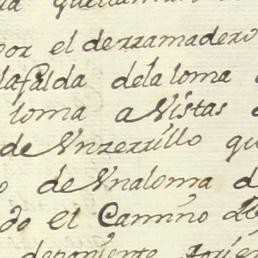 por el derramadero
la falda dela loma
loma a Vistas
de Vnzerrillo qu
de Vnaloma d
do el Camino
deponiente